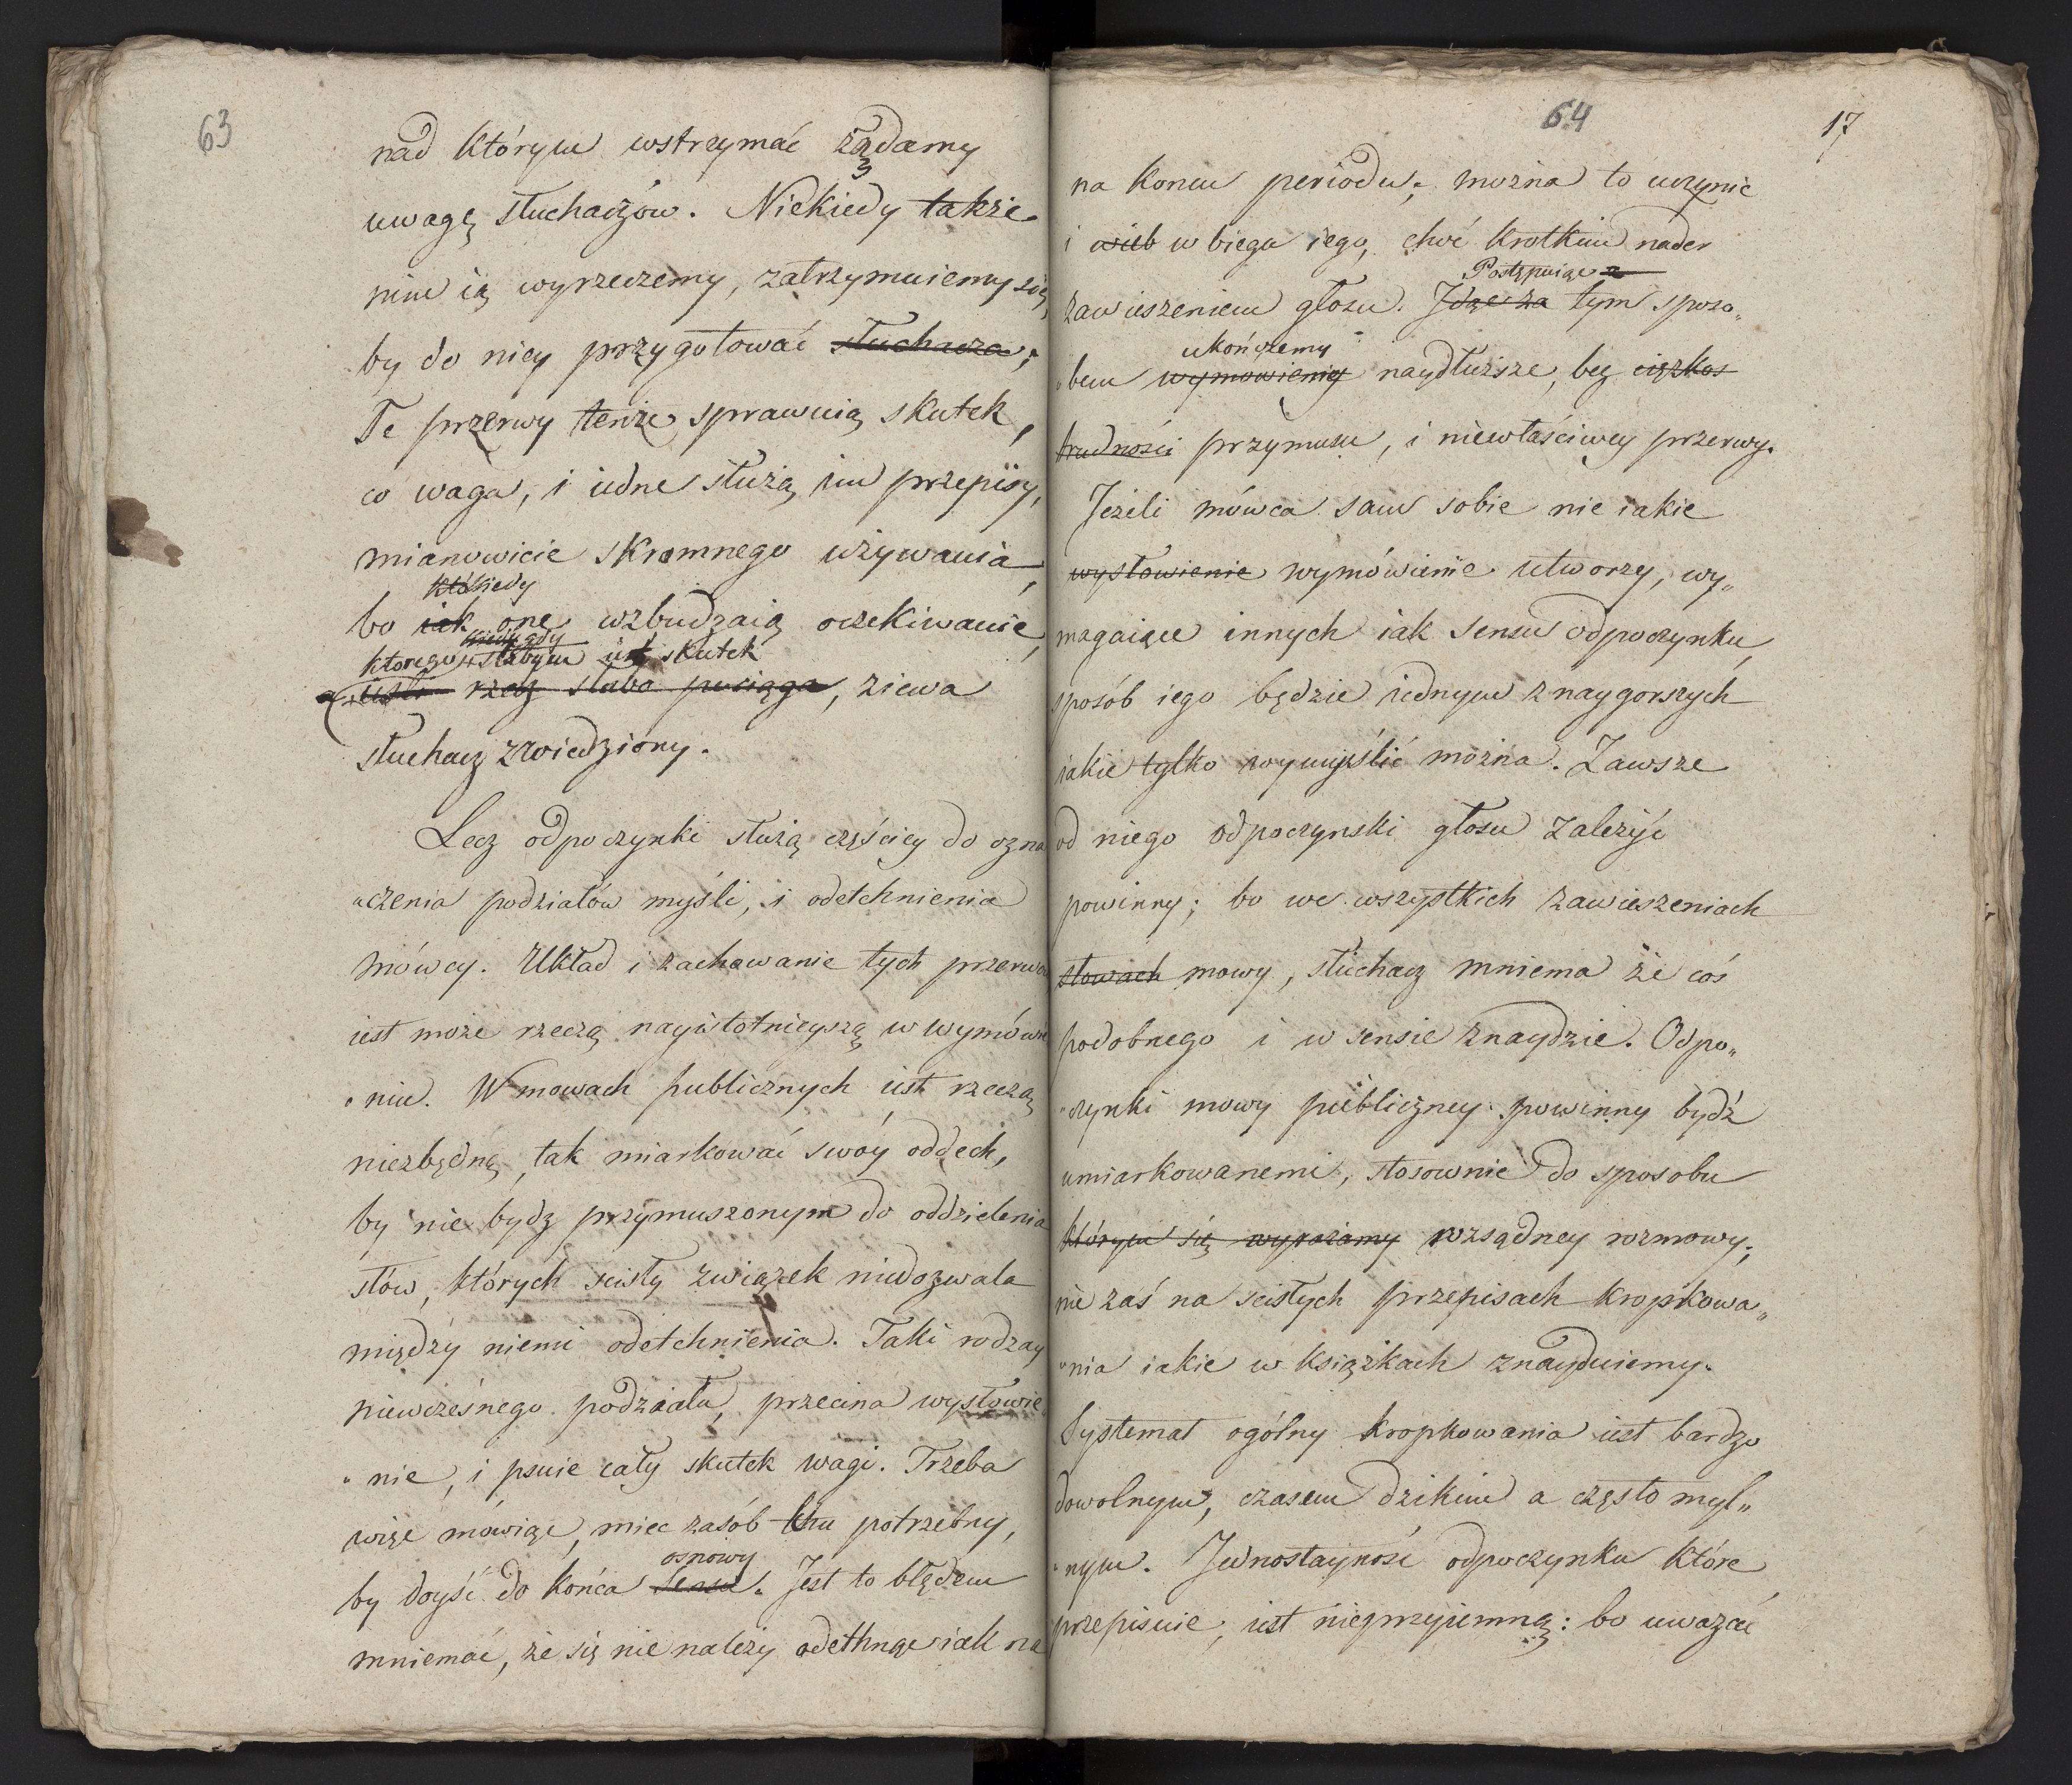 63
nad którym wstrzymać żądamy
uwagę słuchaczów. Niekiedy także
nim ią wyrzeczemy, zatrzymuiemy się,
by do niey przygotować słuchacza;
Te przerwy tenże sprawuią skutek,
co waga, i iedne służą im przepisy,
mianowicie skromnego używania,
kiedy
bo iak one wzbudzaią oczekiwanie,
gdy
którego słabym iest skutek
ieśli rzecz słabo pociąga, ziewa
słuchacz zwiedziony.
Lecz odpoczynki służą częściey do ozna
„czenia podziałów myśli, i odetchnienia
mówcy. Układ i zachowanie tych przerwów
iest może rzeczą nayistotnieyszą w wymówie
„niu. W mowach publicznych iest rzeczą
niezbędną, tak miarkować swóy oddech,
by nie bydz przymuszonym do oddzielenia
słów, których scisły związek niedozwala
między niemi odetchnienia. Taki rodzay
niewczesnego podziału, przecina wysłowie
„nie, i psuie cały skutek wagi. Trzeba
więc mówiąc, miec zasób tchu potrzebny,
osnowy
by doyść do końca sensu. Jest to błędem
mniemać, że się nie należy odetchnąc iak na
64
17
na koncu periodu; można to uczynic
i wieb w biegu iego, choć krotkim nader
Postępuiąc
zawieszeniem głosu. Idąc za tym sposo„
ukończemy
„bem wymowiemy naydłuższe, bez ciężkos
trudności przymusu, i niewłaściwey przerwy.
Jeżeli mówca sam sobie nie iakie
wysłowienie wymówienie utworzy, wy„
magaiące innych iak sensu odpoczynku,
sposób iego będzie iednym z naygorszych
iakie tylko wymyślić można. Zawsze
od niego odpoczynski głosu zależyć
powinny; bo we wszystkich zawieszeniach
słowach mowy, słuchacz mniema że coś
podobnego i w sensie znaydzie. Odpo„
„czynki mowy publiczney powinny bydź
umiarkowanemi, stosownie do sposobu
którym się wyrażamy rozsądney rozmowy;
nie zaś na scisłych przepisach kropkowa„
„nia iakie w książkach znayduiemy.
Systemat ogólny kropkowania iest bardzo
dowolnym, czasem dzikim a często myl„
„nym. Jednostayność odpoczynku które
przepisuie, iest nieprzyiemną: bo uważać